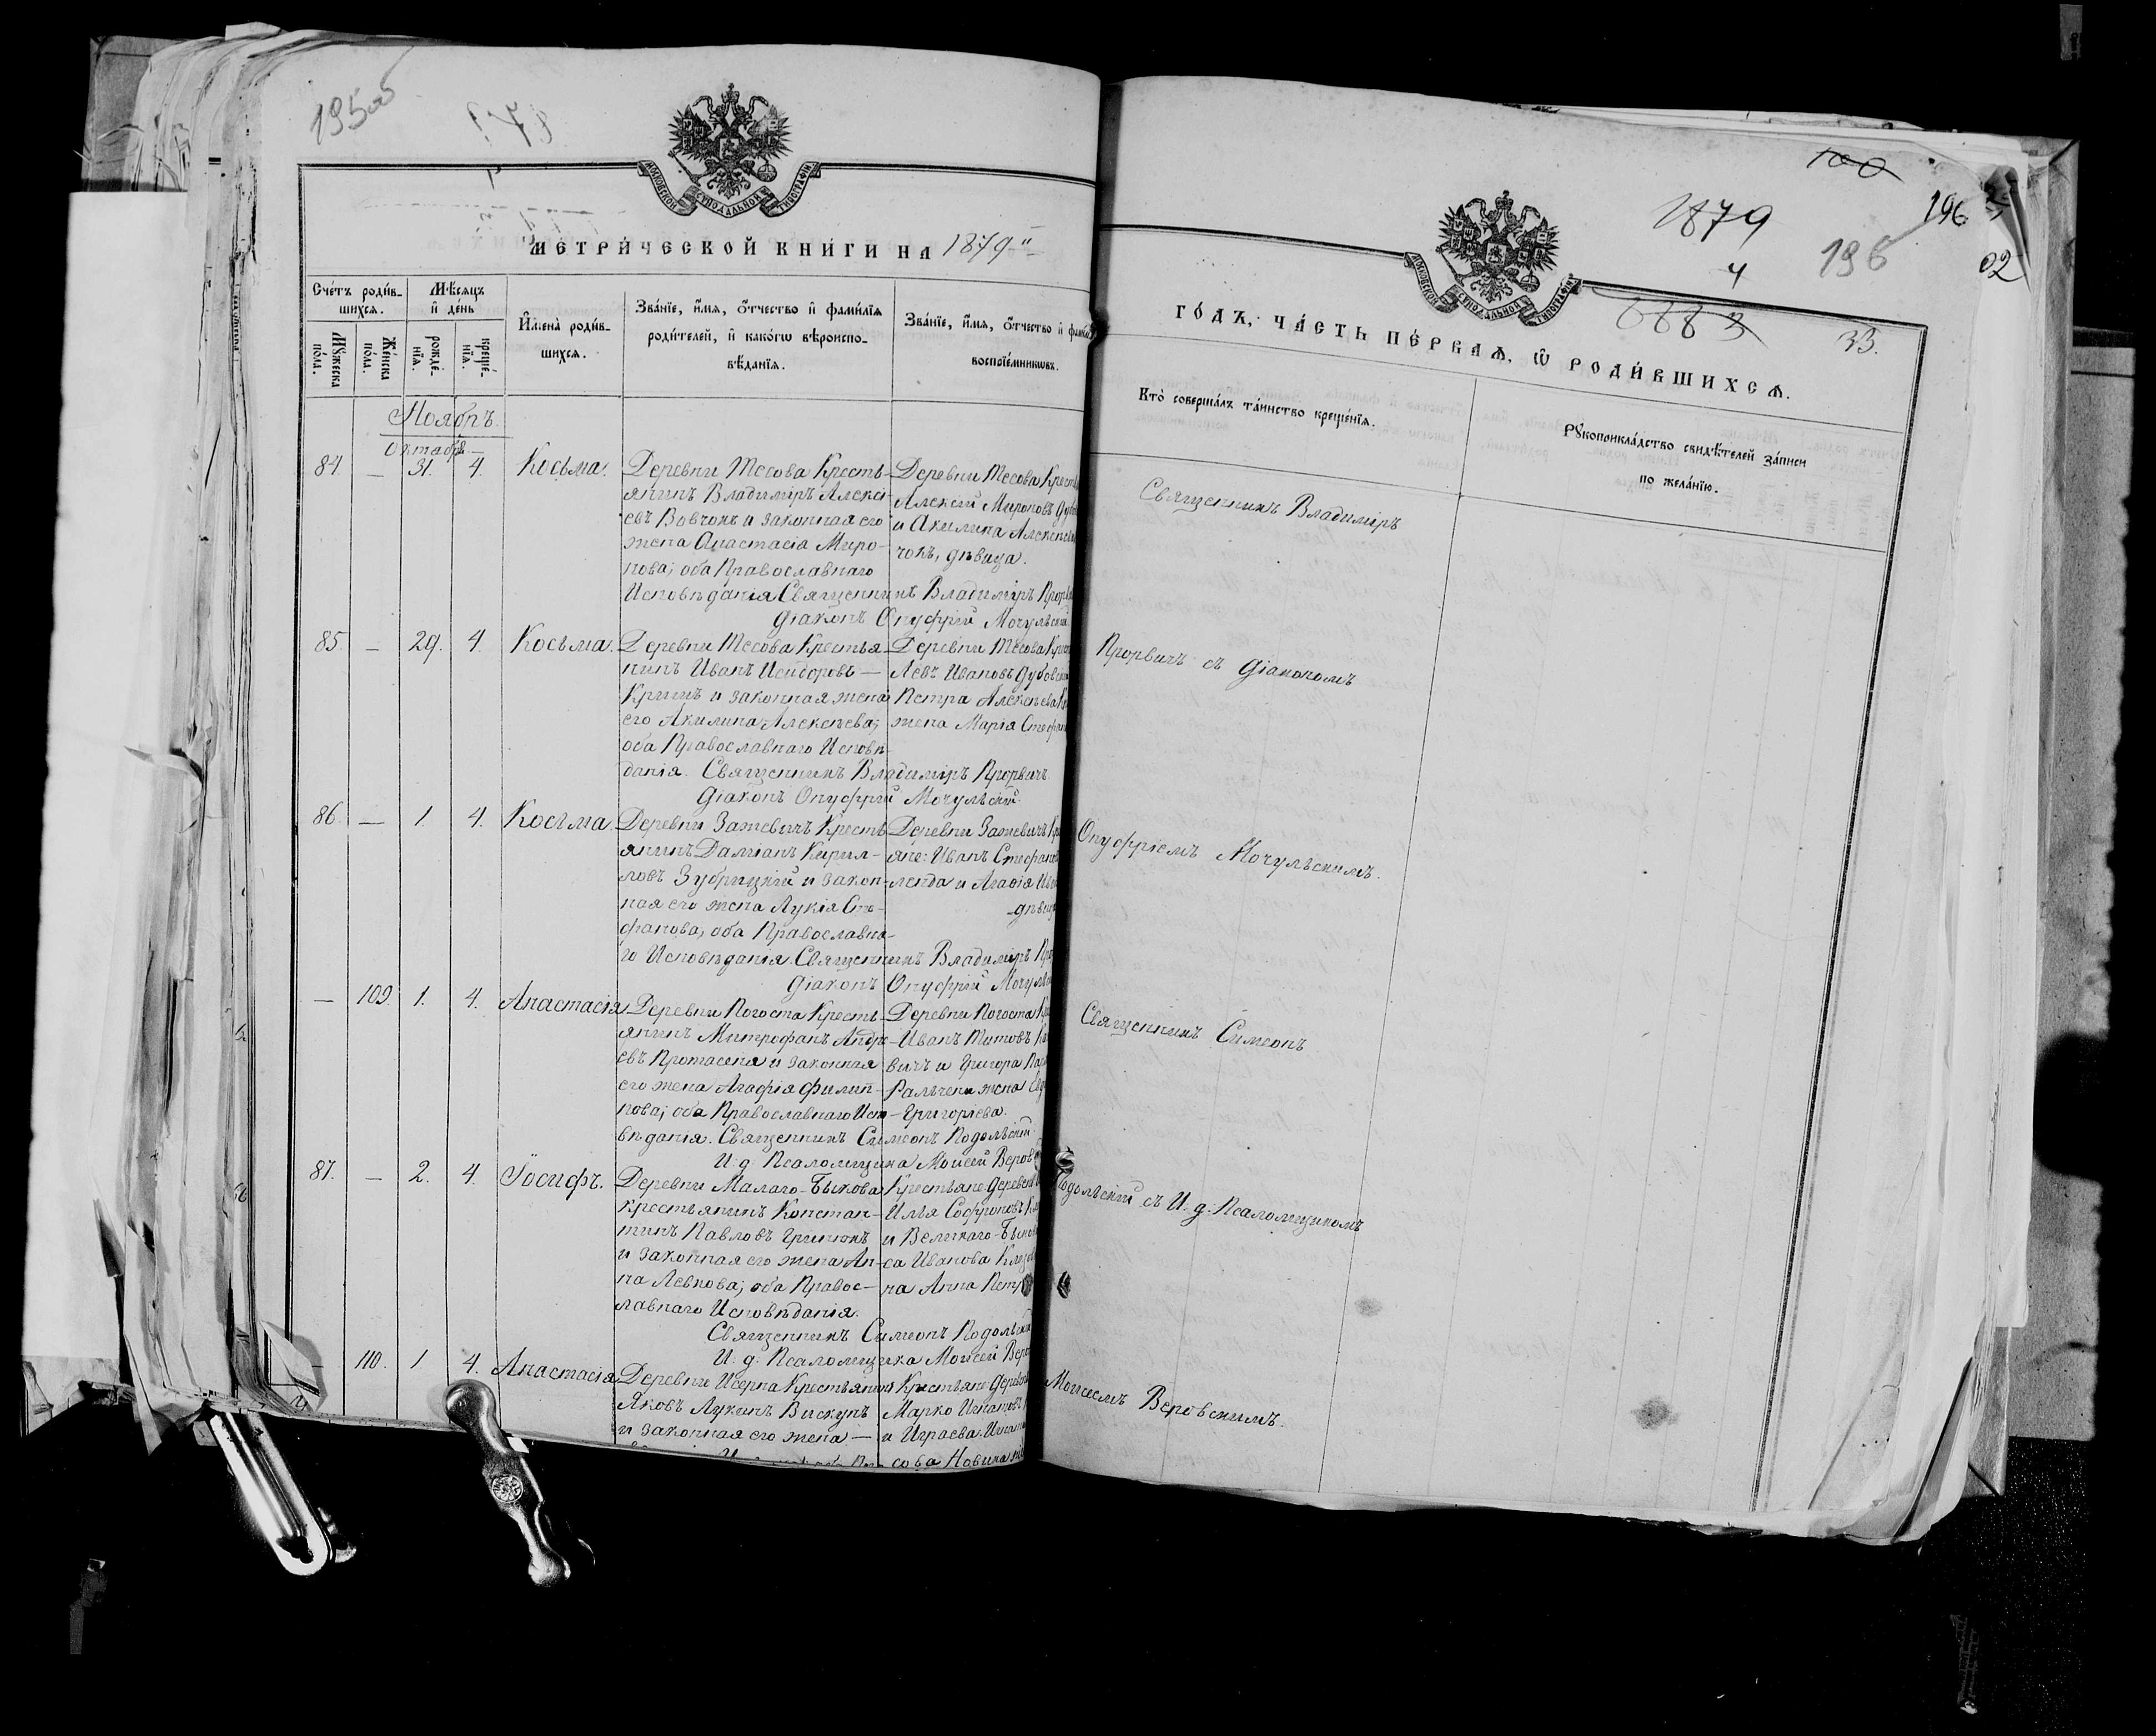 195об
МОСКОВСКОЙ СѴНОДАЛЬНОЙ ТИПОГРАФІИ
МЕТРИ́ЧЕСКОЙ КНИ́ГИ НА 1879
Сче́тъ роди́в-
шихся.
Мꙋ́жеска
по́ла.
Же́нска
по́ла.
Мѣ́сяцъ
и҆ де́нь
рожде́-
нїѧ.
креще́-
нїѧ.
И҆мена̀ роди́в-
шихсѧ.
Зва́нїе, и҆́мѧ, ѻ҆́тчество и҆ фами́лїѧ
роди́телей, и҆ како́гѡ вѣроиспо-
вѣ́данїѧ.
Зва́нїе, и҆́мѧ, ѻ҆́тчество и҆
воспрїе́мникѡвъ.
Ноябрь.
Октябр.
84. — 31. 4. Косьма. Деревни Тесова Кресть-
янинъ Владиміръ Алексі-
евъ Вовчокъ и законная его
жена Анастасія Миро-
нова; оба Православнаго
Исповѣданія Священникъ Владиміръ
Діаконъ Онуфрій Мочульскій
Деревни Тесова
Алексій Мироновъ
и Акилина
чокъ, дѣвица.
85. — 29. 4. Косьма. Деревни Тесова Крестья-
нинъ Иванъ Исидоровъ —
Кричъ и законная жена
его Акилина Алексѣева;
оба Православнаго Исповѣ-
данія. Священникъ Владиміръ Прорвичъ
Діаконъ Онуфрій Мочульскій
Деревни Тесова
Левъ Ивановъ
Петра Алексѣева
жена Марія
86. — 1. 4. Косьма. Деревни Зажевичъ Кресть-
янинъ Даміанъ Кирил-
ловъ Зубрицкій и закон-
ная его жена Лукія Сте-
фанова; оба Православна-
го Исповѣданія. Священникъ Владиміръ
Діаконъ Онуфрій
Деревни Зажевичъ
яне: Иванъ
и Агафія
— 109. 1. 4. Анастасія Деревни Погоста Кресть-
янинъ Митрофанъ Андре-
евъ Протасеня и законная
его жена Агафія Филип-
пова; оба Православнаго Испо-
вѣданія. Священникъ Симеонъ Подольскій
И. д. Псаломщика Моисей
Деревни Погоста
Иванъ Титовъ
вичъ и Григора
жена
Григоріева.
87. — 2. 4. Іосифъ. Деревни Малаго-Быкова
Крестьянинъ Констан-
тинъ Павловъ Гришокъ
и законная его жена Ан-
на Левкова; оба Правос-
лавнаго Исповѣданія.
Священникъ Симеонъ
И. д. Псаломщика Моисей
Крестьяне
Илья Софроновъ
и Великаго
са Иванова
на Анна
110. 1. 4. Анастасія Деревни Исерна Крестьянинъ
Яковъ Лукинъ Вискупъ
и законная его жена —
Крестьяне
Марко
и Играева
сова Новика
1879
100
196
196
02
4
8883
33.
МОСКОВСКОЙ СѴНОДАЛЬНОЙ ТИПОГРАФІИ
ГО́ДЪ, ЧА́СТЬ ПЕ́РВАѦ, Ѡ҆ РОДИ́ВШИХСѦ.
Кто̀ соверша́лъ та́инство креще́нїѧ.
Рꙋкоприкла́дство свидѣ́телей за́писи
по жела́нїю.
Священникъ Владиміръ
Прорвичъ съ Діакономъ
Онуфріемъ Мочульскимъ.
Священникъ Симеонъ
Подольскій съ И. д. Псаломщикомъ
Моисеемъ Веровскимъ.